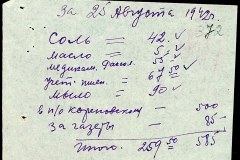 За 25 Августа 1942г.
372
Соль = 42. ✓
масло = 5. ✓
медикам. = 55. ✓
пшен. = 67 50 ✓
мыло = 90 ✓
в п/о — 500
За газеты — 85
Итого. 259 50 585